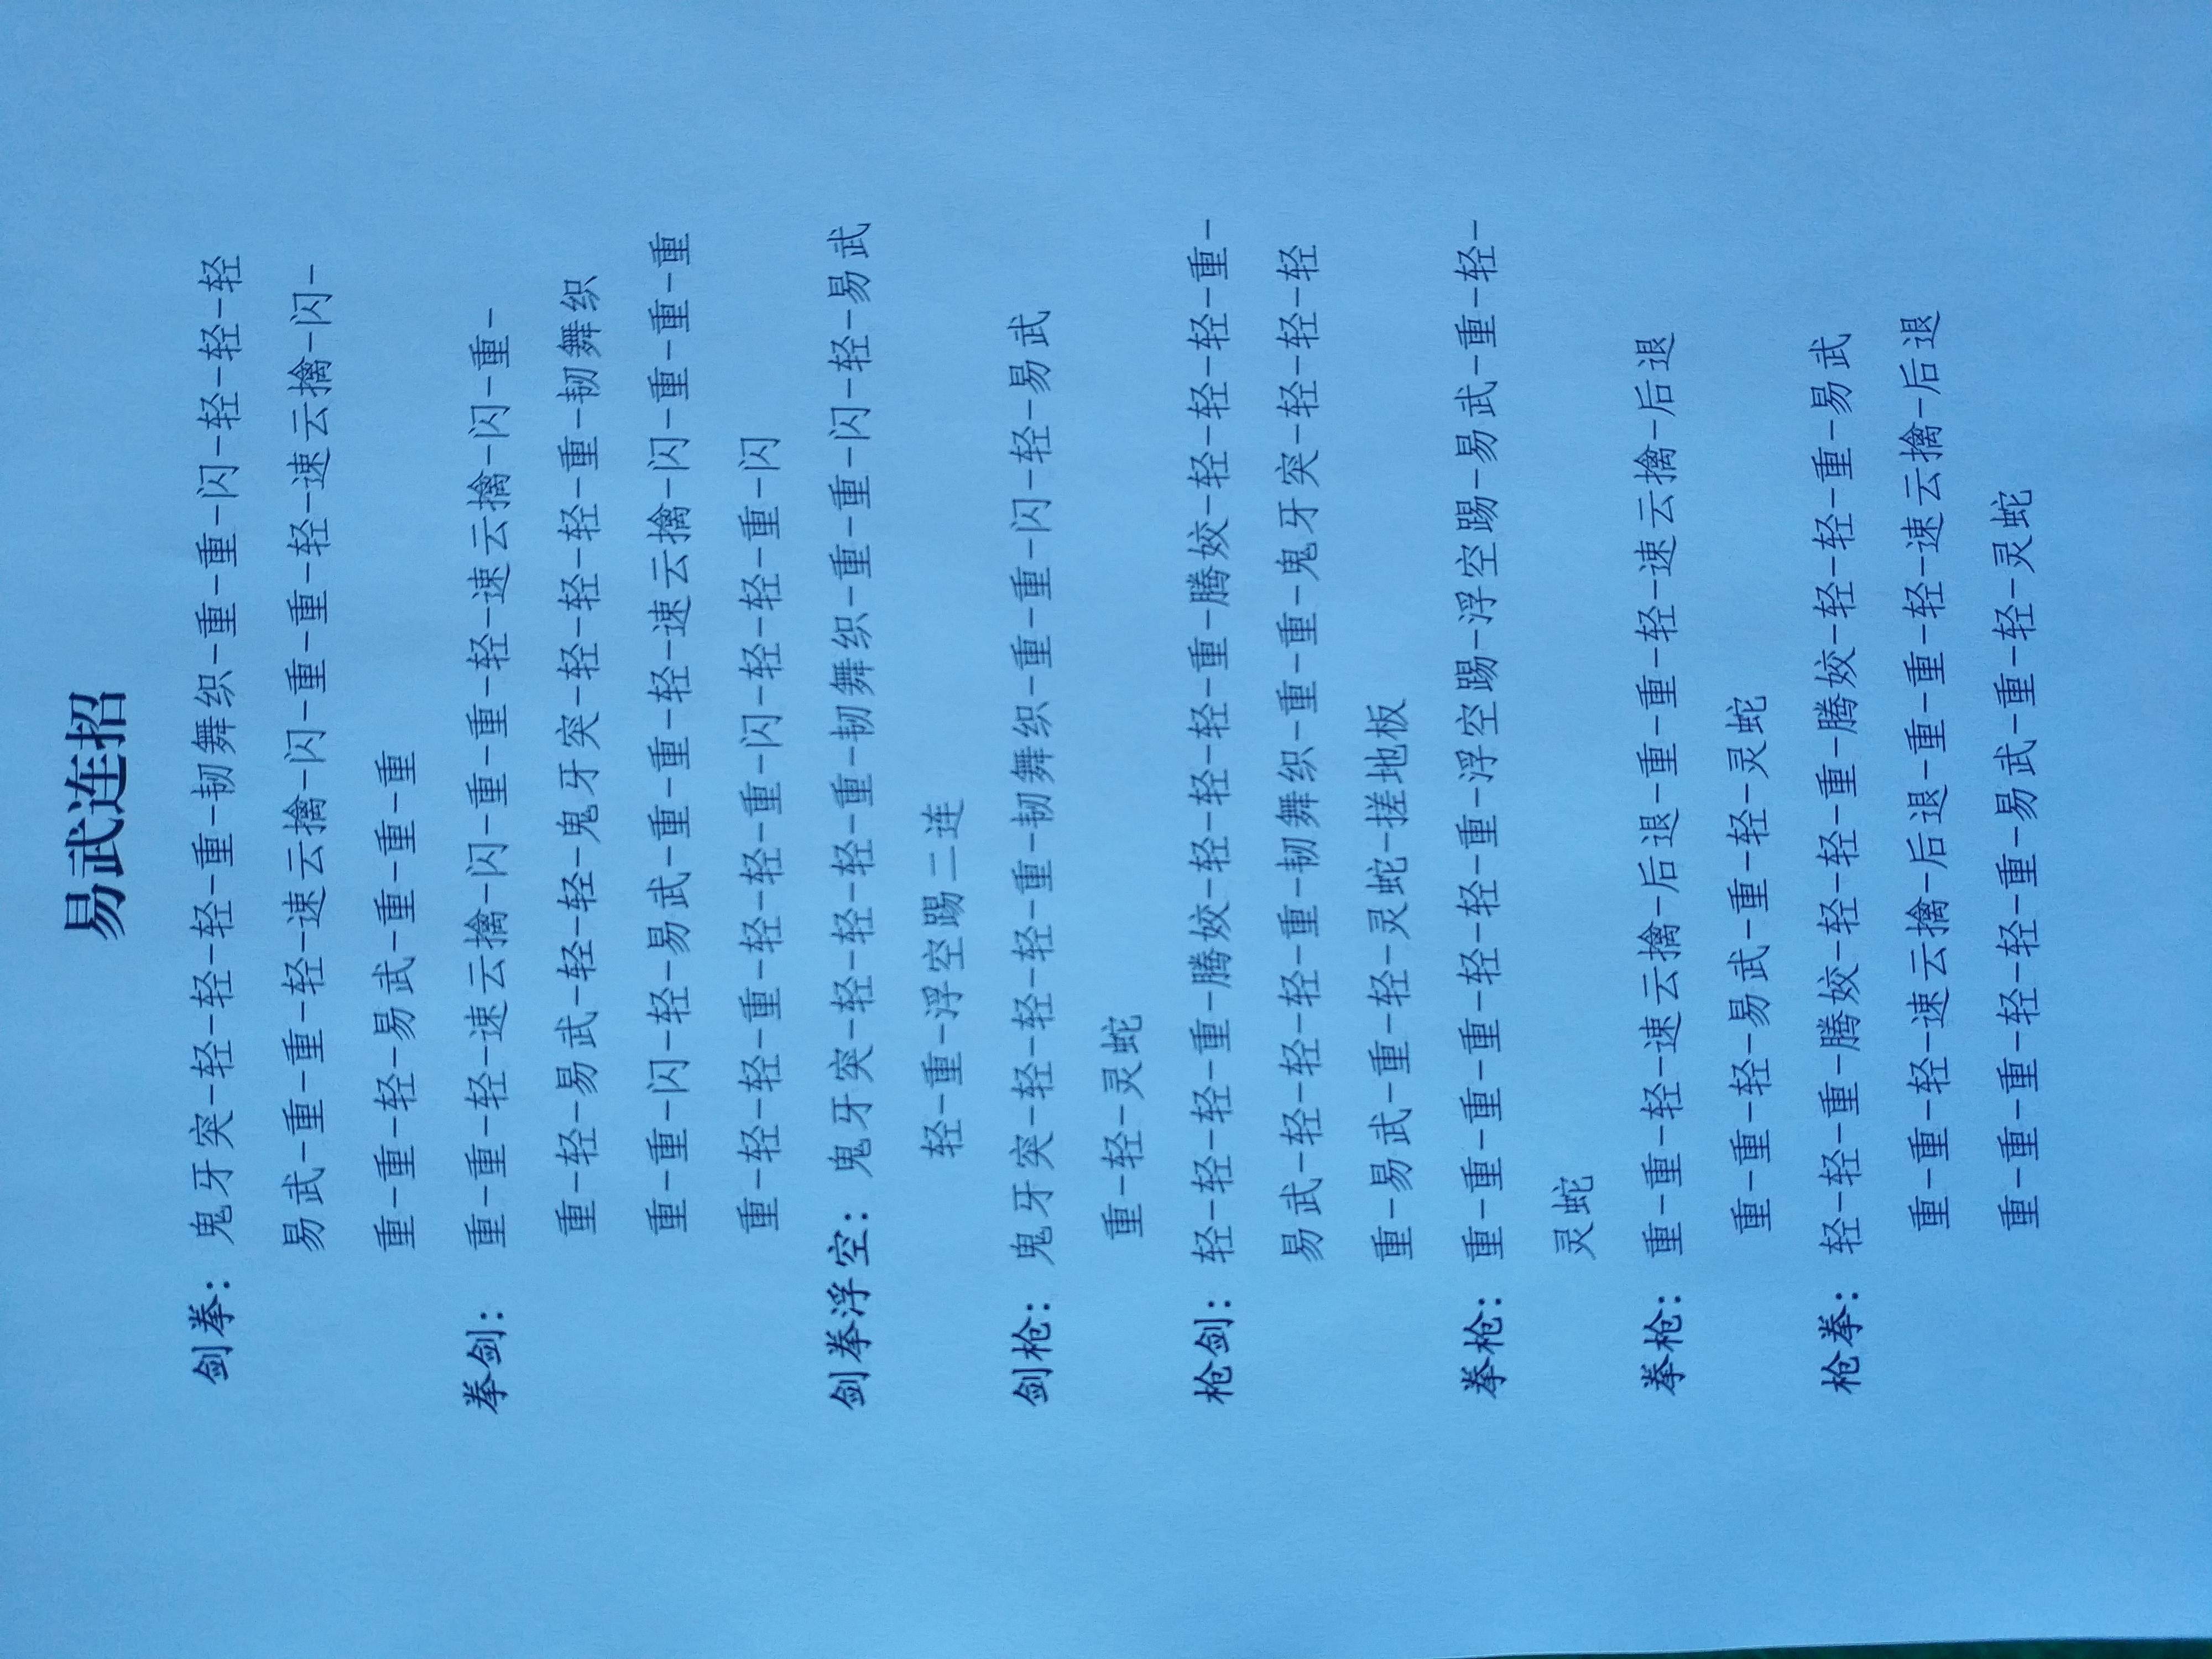 易武连招
剑拳：鬼牙突-轻-轻-轻-重-韧舞织-重-重-闪-轻-轻-轻
易武-重-重-轻-速云擒-闪-重-重-轻-速云擒-闪-
重-重-轻-易武-重-重-重
拳剑：重-重-轻-速云擒-闪-重-重-重-轻-速云擒-闪-重-
重-轻-易武-轻-轻-鬼牙突-轻-轻-轻-重-韧舞织
重-重-闪-轻-易武-重-重-轻-速云擒-闪-重-重-重
重-轻-轻-重-轻-轻-重-闪-轻-轻-重-闪
剑拳浮空：鬼牙突-轻-轻-轻-重-韧舞织-重-重-闪-轻-易武
轻-重-浮空踢二连
剑枪：鬼牙突-轻-轻-轻-重-韧舞织-重-重-闪-轻-易武
重-轻-灵蛇
枪剑：轻-轻-轻-重-腾姣-轻-轻-轻-重-腾姣-轻-轻-轻-重-
易武-轻-轻-轻-重-韧舞织-重-重-鬼牙突-轻-轻-轻
重-易武-重-轻-灵蛇-搓地板
拳枪：重-重-重-重-轻-轻-重-浮空踢-浮空踢-易武-重-轻-
灵蛇
拳枪：重-重-轻-速云擒-后退-重-重-轻-速云擒-后退
重-重-轻-易武-重-轻-灵蛇
枪拳：轻-轻-重-腾姣-轻-轻-重-腾姣-轻-轻-重-易武
重-重-轻-速云擒-后退-重-重-轻-速云擒-后退
重-重-重-轻-轻-重-易武-重-轻-灵蛇